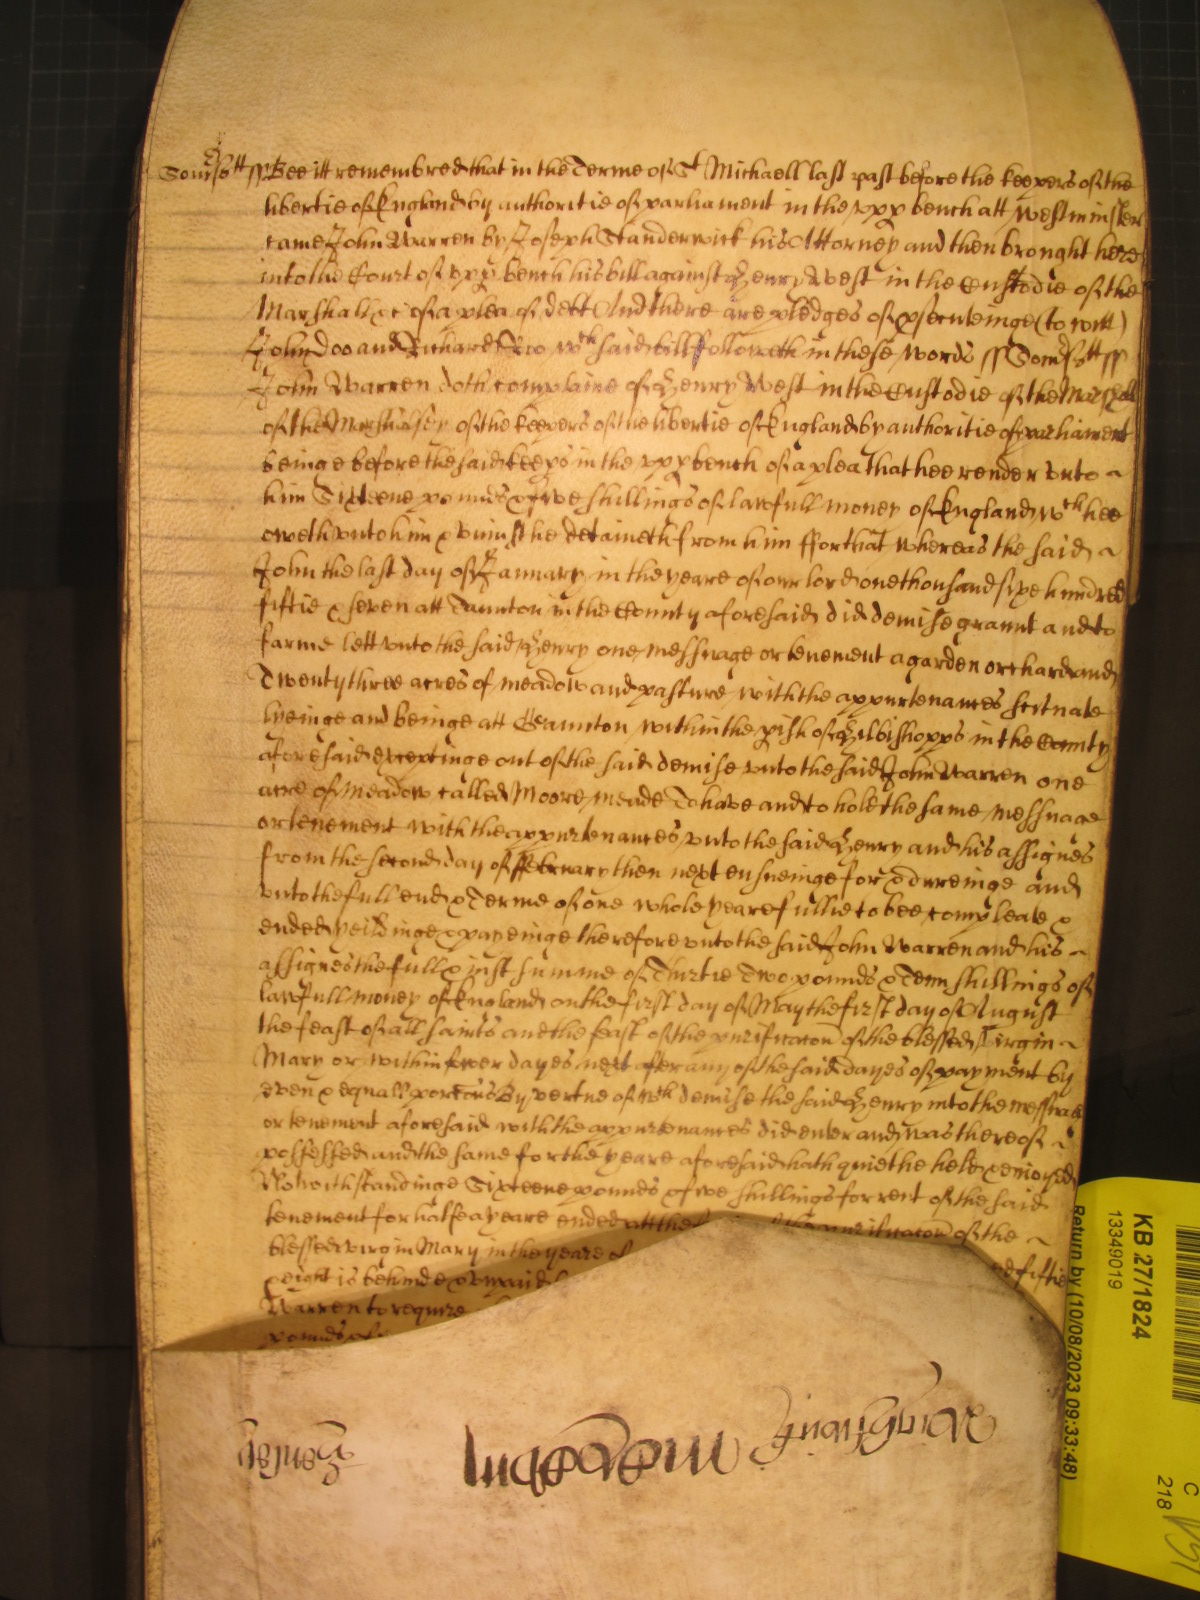 Somsett ss Bee itt remembred that in the Terme of St Michaell last past before the keepers of the
libertie of England by authoritie of parliament in the vpp bench att Westminster
came John Warren by Joseph Standerwick his Attorney and then brought here
into the Court of vpp bench his bill against Henry West in the Custodie of the
Marshall &c of a plea of dett And there are pledges of psecuteinge (to witt)
John Doo and Richard Roo wch said bill followeth in these words ss Somsett ss
John Warren doth complaine of Henry West in the Custodie of the Marshall
of the Marshalsey of the keepers of the libertie of England by authoritie of parliament
beinge before the said keeps in the vpp bench of a plea that hee render vnto
him Sixteene pounds & five shillings of lawfull money of England wch hee
oweth vnto him & vniustlie detaineth from him ffor that whereas the said
John the last day of January in the yeare of our lord one thousand sixe hundred
fiftie & seven att Taunton in the County aforesaid did demise graunt and to
farme lett vnto the said Henry one messuage or tenement a garden orchard and
Twenty three acres of meadow and pasture with the appurtenances scituate
lyeinge and beinge att Staunton within the pish of Hilbishopps in the County
aforesaid exceptinge out of the said demise vnto the said John Warren one
acre of Meadow called Moore meade To have and to hold the same messuage
or tenement with the appurtenances vnto the said Henry and his assignes
from the second day of ffebruary then next ensueinge for & dureinge and
vnto the full end & Terme of one whole yeare fullie to bee compleate &
ended yeildinge & payeinge therefore vnto the said John Warren and his
assignes the full & iust summe of Thirtie Two pounds & Tenn shillings of
lawfull money of England on the first day of May the first day of August
the feast of all saints and the feast of the purificacon of the blessed Virgin
Mary or within fower dayes next after any of the said dayes of payment by
even & equall porcons By vertue of wch demise the said Henry into the messuage
or tenement aforesaid with the appurtenances did enter and was thereof
possessed and the same for the yeare aforesaid hath quietlie held & enioyed
Notwithstandinge Sixteene pounds & five shillings for rent of the said
tenement for halfe a yeare ended att the purificacon of the
blessed virgin Mary in the yeare of ed fiftie
& eight is behinde & vnpaid
Warren to require
pounds of
KB 27/1824
13349019
Return by (10/08/2023 09:33:48)
C
218